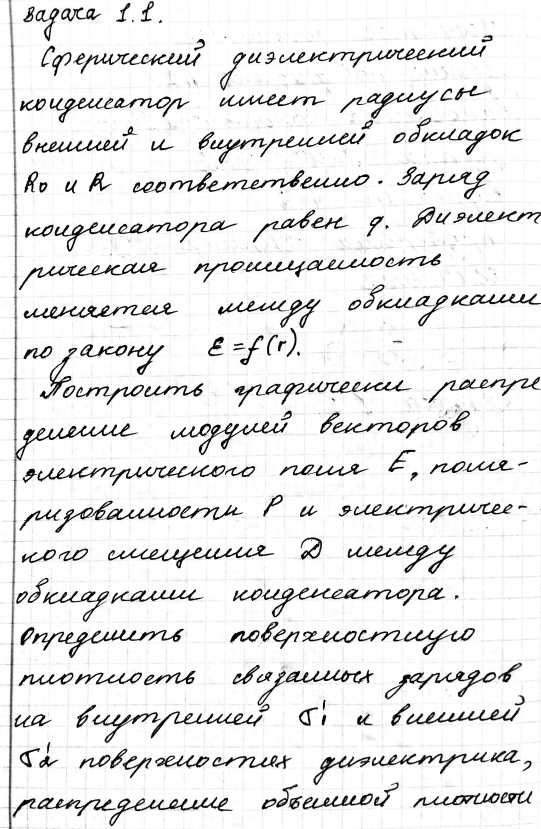 Задача 1.1.
Сферический диэлектрический
конденсатор имеет радиусы
внешней и внутренней обкладок
R₀ и R соответственно. Заряд
конденсатора равен q. Диэлект
рическая проницаемость
меняется между обкладками
по закону ε = f(r).
Построить графически распре
деление модулей векторов
электрического поля E, поля-
ризованности P и электричес-
кого смещения D между
обкладками конденсатора.
Определить поверхностную
плотность связанных зарядов
на внутренней σ'₁ и внешней
σ'₂ поверхностях диэлектрика,
распределение объемной плотности